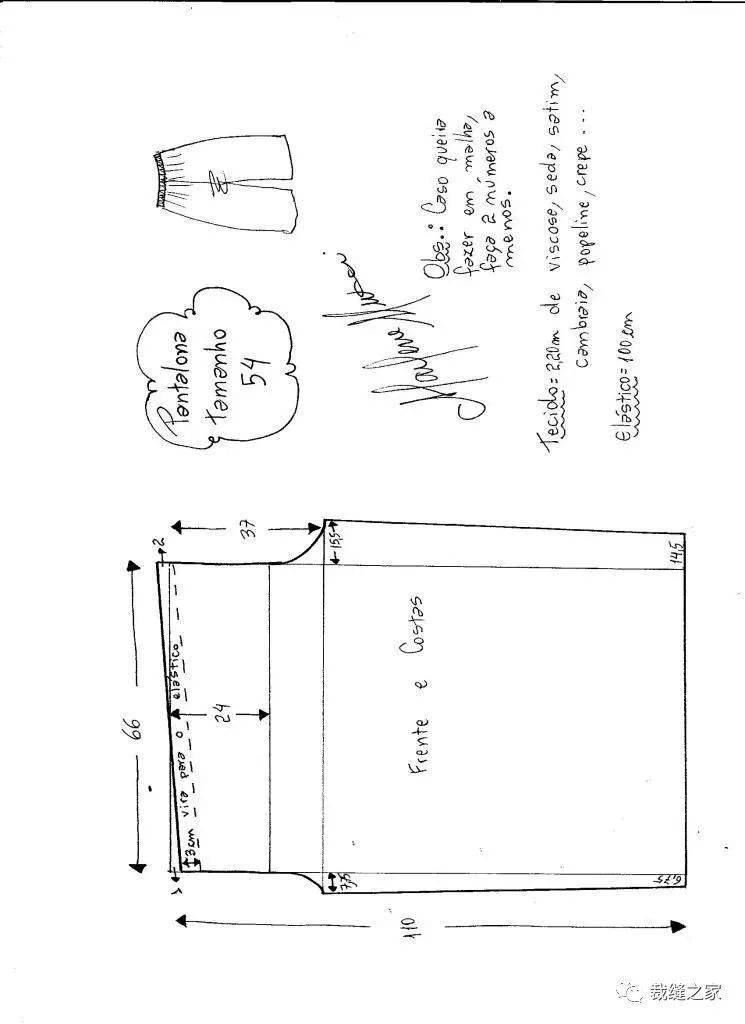 Pantalona
tamanho
54
Obs.: Caso queira
fazer em malha,
faça 2 números a
menos.
Tecido = 2,20m de viscose, seda, satim,
cambraia, popeline, crepe ...
Elástico = 100 cm
66
2
37
3cm vira para o elástico
24
1
15,5
7,5
Frente e Costas
14,5
6,75
110
裁缝之家